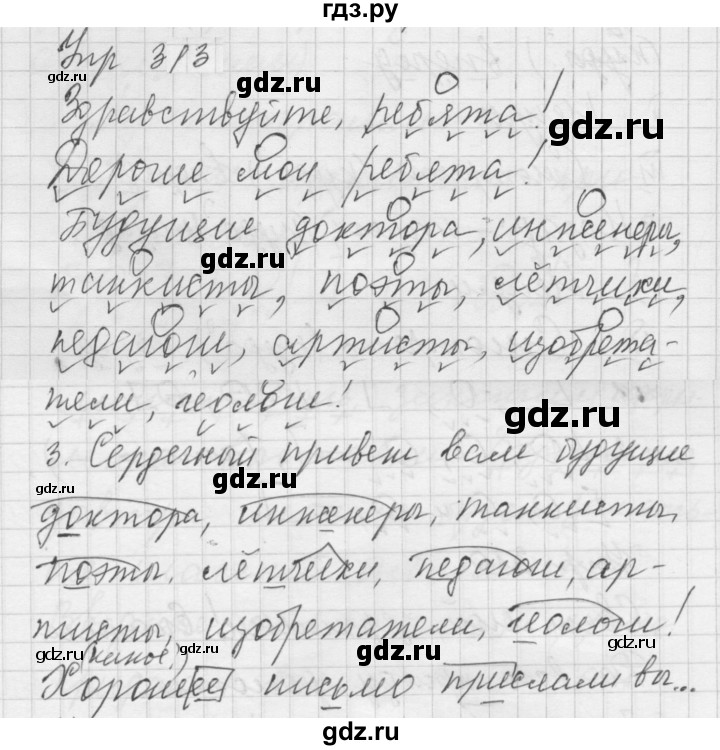 гдз.ру
Упр 313
gdz.ru gdz.ru
Здравствуйте, ребята!
gdz.ru
Дорогие мои ребята!
Будущие доктора, инженеры,
gdz.ru gdz.ru
танкисты, поэты, лётчики,
педагоги, артисты, изобрета-
тели, геологи!
gdz.ru
3. Сердечный привет вам будущие
gdz.ru gdz.ru
доктора, инженеры, танкисты,
поэты, лётчики, педагоги, ар-
тисты, изобретатели, геологи!
gdz.ru (какое?) gdz.ru
Хорошее письмо прислали вы...
gdz.ru